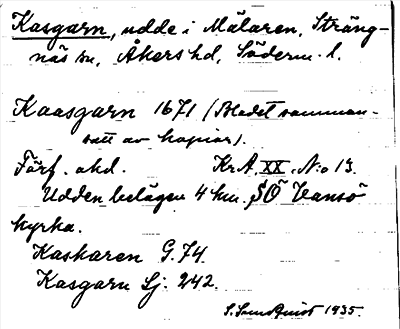 Kasgarn, udde i Mälaren, Sträng-
näs sn, Åkers hd, Söderm. l.
Kaasgarn 1671 (Bladet samman-
satt av kopior).
Förf. okd. KrA, XX. N:o 13.
Udden belägen 4 km. SÖ Vansö
kyrka.
Kaskaren G. 74.
Kasgarn Lj. 242.
S. Sundquist 1935.